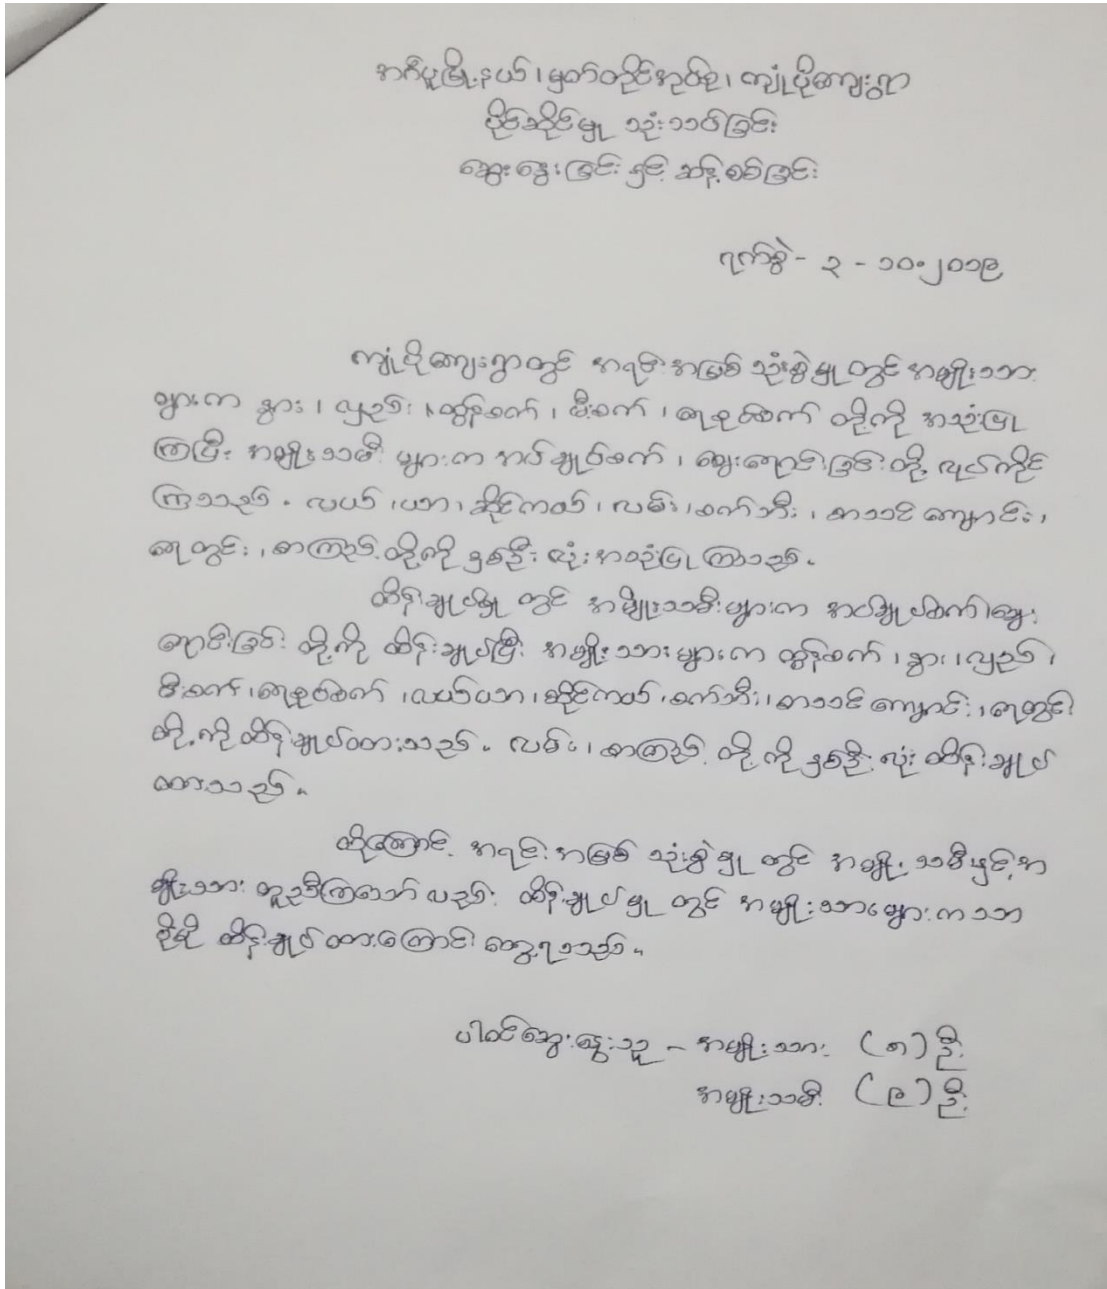 အင်္ဂပူမြို့နယ်၊ မှတ်တိုင်အုပ်စု၊ ကျုံပိုကျေးရွာ
ပိုင်ဆိုင်မှု သုံးသပ်ခြင်း
ဆွေးနွေးခြင်း နှင့် ဆန်းစစ်ခြင်း
ရက်စွဲ - ၃ - ၁၀-၂၀၁၉
ကျုံပိုကျေးရွာတွင် အရင်းအမြစ် သုံးစွဲမှုတွင် အမျိုးသား
များက နွား၊ လှည်း၊ ထွန်စက်၊ မီးစက်၊ ရေစုပ်စက် တို့ကို အသုံးပြု
ကြပြီး အမျိုးသမီး များက အပ်ချုပ်စက်၊ မွေးရောင်းခြင်းတို့ လုပ်ကိုင်
ကြသည်။ လယ်၊ ယာ၊ ဆိုင်ကယ်၊ လမ်း၊ စက်ဘီး၊ စာသင်ကျောင်း၊
ရေတွင်း၊ စာကြည့်တို့ကို နှစ်ဦးလုံး အသုံးပြုကြသည်။
ထိန်းချုပ်မှု တွင် အမျိုးသမီးများက အပ်ချုပ်စက်၊ မွေး
ရောင်းခြင်း တို့ကို ထိန်းချုပ်ပြီး အမျိုးသားများက ထွန်စက်၊ နွား၊ လှည်း၊
မီးစက်၊ ရေစုပ်စက်၊ လယ်ယာ၊ ဆိုင်ကယ်၊ စက်ဘီး၊ စာသင်ကျောင်း၊ ရေတွင်း
တို့ကို ထိန်းချုပ်ထားသည်။ လမ်း၊ စာကြည့် တို့ကို နှစ်ဦးလုံး ထိန်းချုပ်
ထားသည်။
ထို့ကြောင့် အရင်းအမြစ် သုံးစွဲမှု တွင် အမျိုးသမီးနှင့် အ
မျိုးသား တူညီကြသော်လည်း ထိန်းချုပ်မှု တွင် အမျိုးသားများကသာ
ပိုမို ထိန်းချုပ်ထားကြောင်း တွေ့ရသည်။
ပါဝင်ဆွေးနွေးသူ - အမျိုးသား (၈) ဦး
အမျိုးသမီး (၉) ဦး